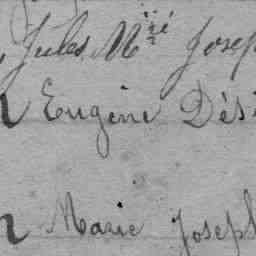 , Jules Mⁱᵉ Josep
Eugène Dési
Marie Joseph